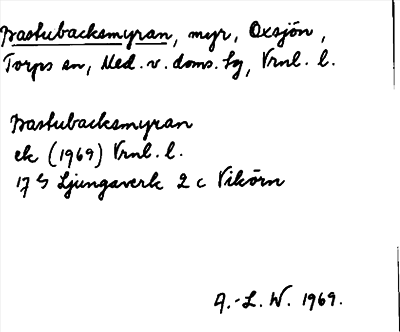 Bastubacksmyran, myr, Oxsjön,
Torps sn, Med. v. doms. sg, Vrnl. l.
Bastubacksmyran
ek (1969) Vrnl. l.
17 G Ljungaverk 2 c Vikörn
A.-L. W. 1969.